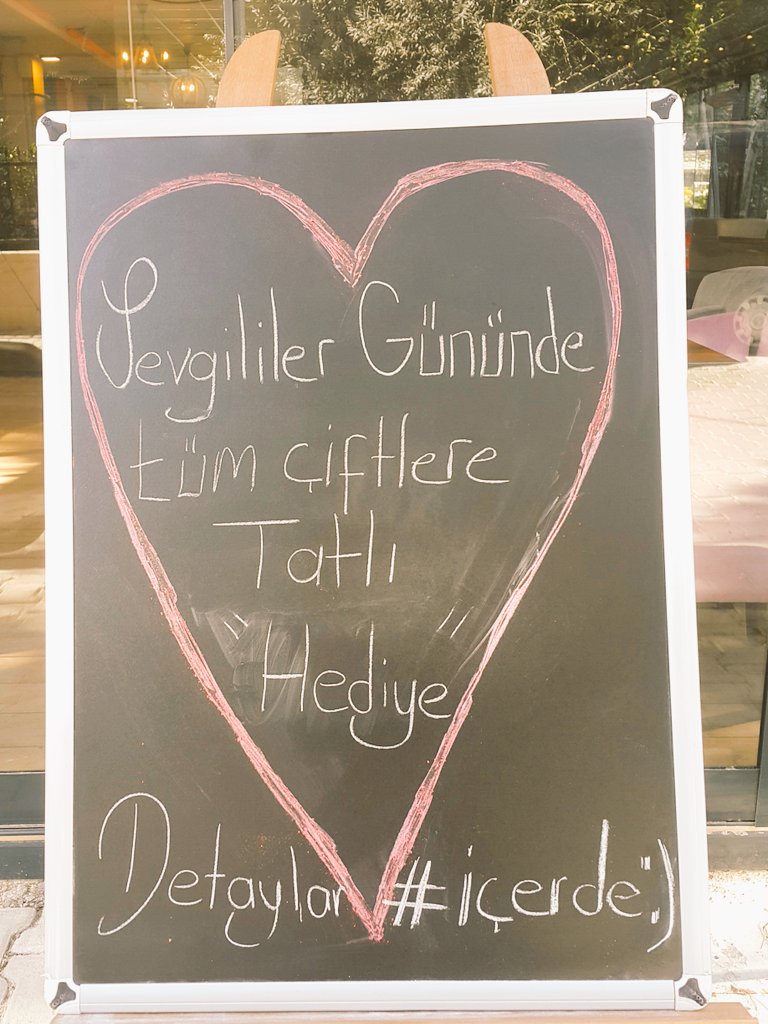 Sevgililer Gününde
tüm çiftlere
Tatlı
"Hediye"
Detaylar #içerde:)